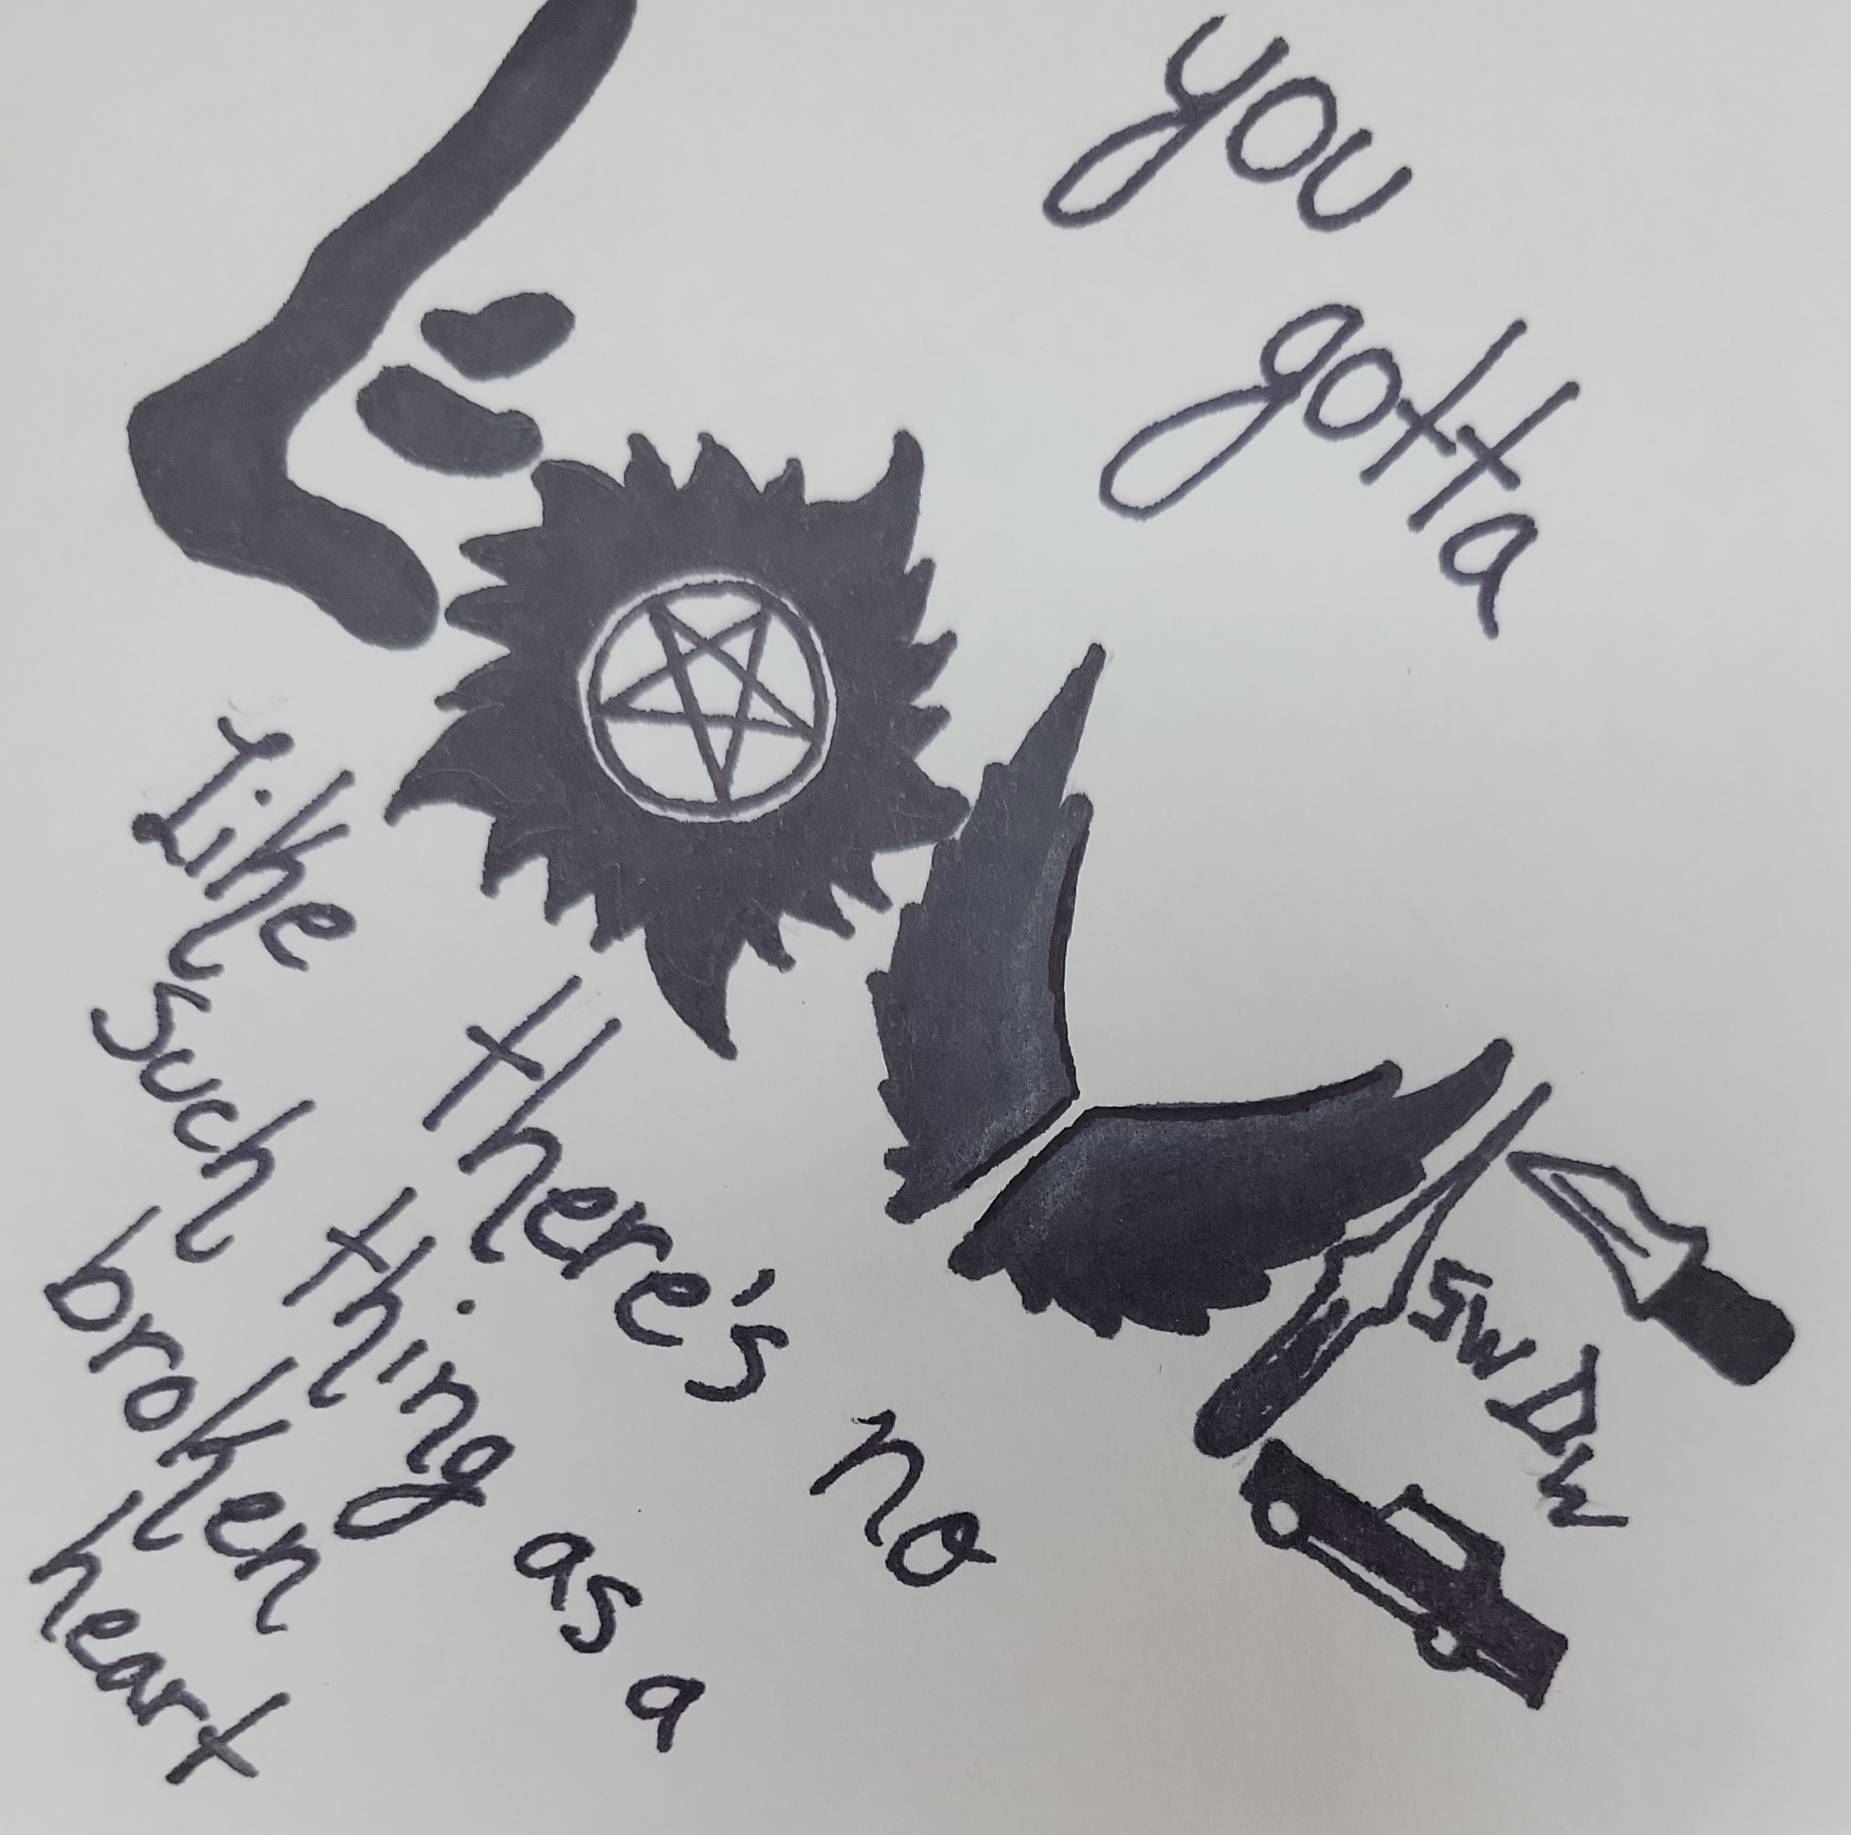 you
gotta
SW DW
Like there's no
such thing as a
broken
heart